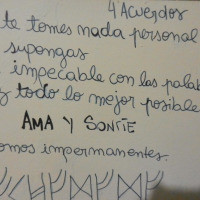 4 Acuerdos
te tomes nada personal
supongas
impecable con las palab
y todo lo mejor posible
AMA Y SONRÍE
omos impermanentes.